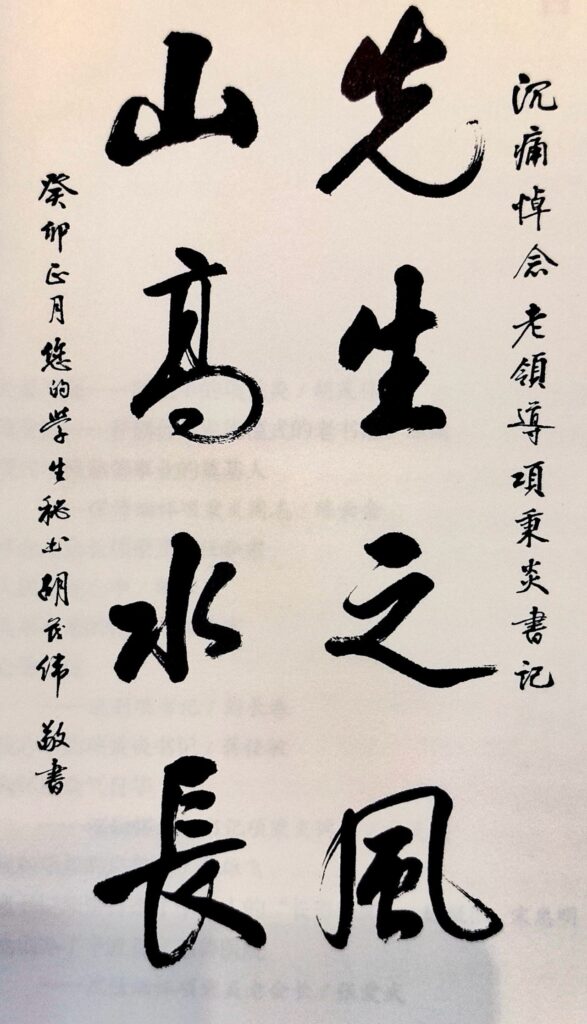 沉痛悼念老領導項秉炎書記
先生之風
山高水長
癸卯正月您的学生秘书胡茂伟 敬書